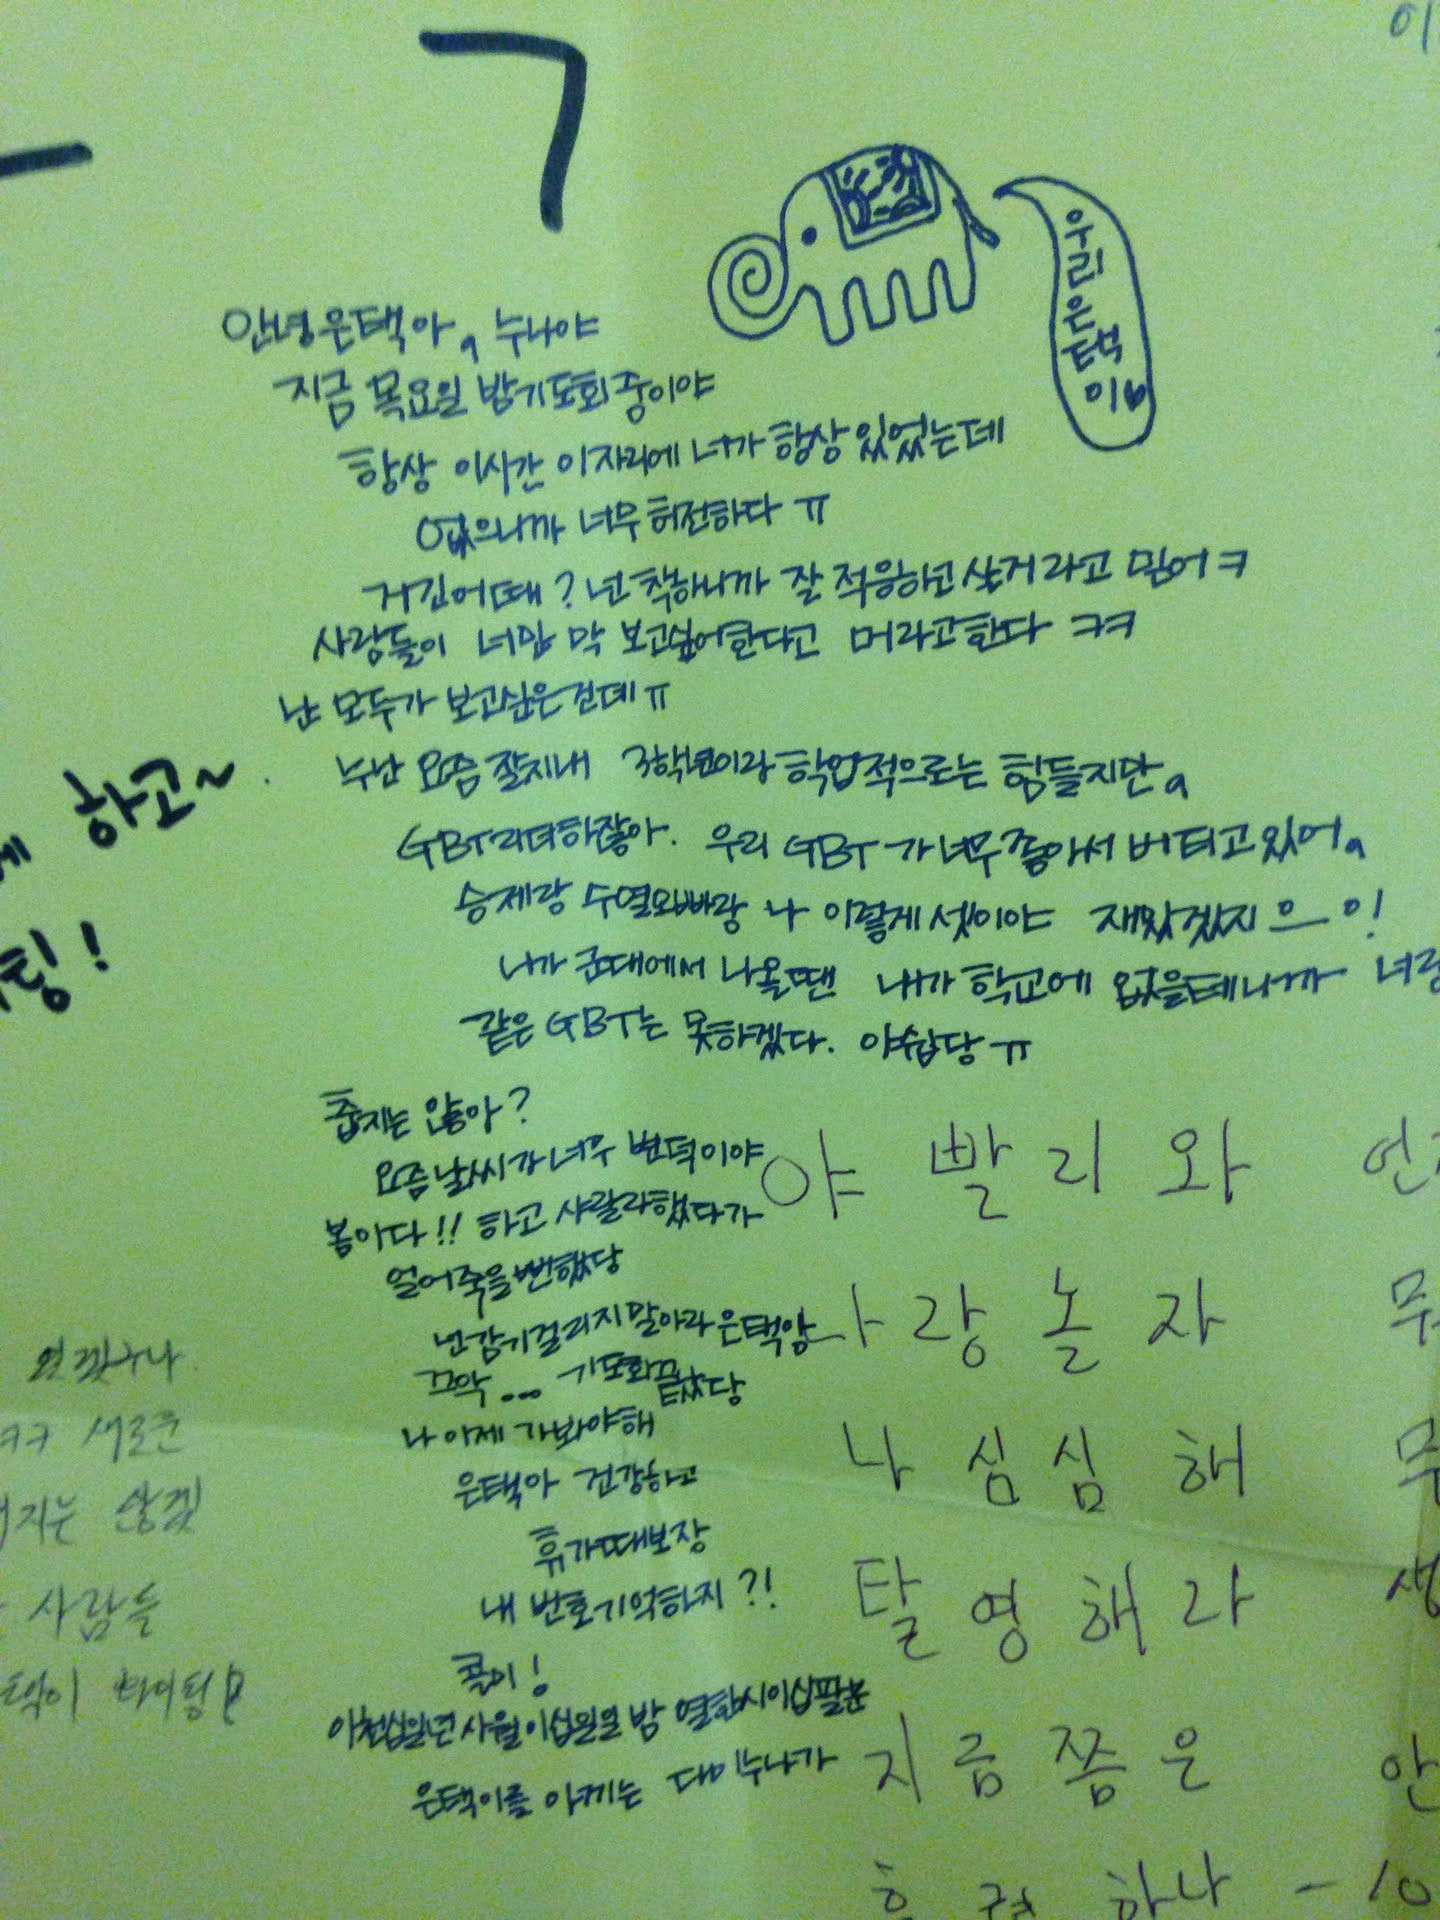 ㄱ
우리
은
택
이
안녕 은택아, 누나야
지금 목요일 밤기도회중이야
항상 이시간 이자리에 너가 항상 있었는데
없으니까 너무 허전하다 ㅠ
거긴어때? 넌 착하니까 잘 적응하고 살거라고 믿어 ㅋ
사람들이 너만 막 보고싶어한다고 머라고한다 ㅋㅋ
난 모두가 보고싶은건데 ㅠ
누난 요즘 잘지내 3학년이라 학업적으로는 힘들지만,
GBT리더하잖아. 우리 GBT가 너무좋아서 버티고있어,
승제랑 수열오빠랑 나 이렇게 셋이야 재밌겠지 으_으!
니가 군대에서 나올땐 내가 학교에 없을테니까 너랑
같은 GBT는 못하겠다. 아쉽당 ㅠ
춥지는 않아?
요즘날씨가 너무 변덕이야
봄이다!! 하고 샤랄라했다가
얼어죽을뻔했당
넌감기걸리지말아라 은택앙
끄악... 기도회끝났당
나 이제 가봐야해
은택아 건강하고
휴가때보장
내 번호기억하지?!
콜이!
이천십일년 사월이십일일 밤 열한시이십팔분
은택이를 아끼는 다미누나가
하고~
팅!
야 빨리와
사랑놀자
나 심심해
탈영해라
지금쯤은
하나 - 10
새로운
지는 않겠
사람들
택이 화이팅!